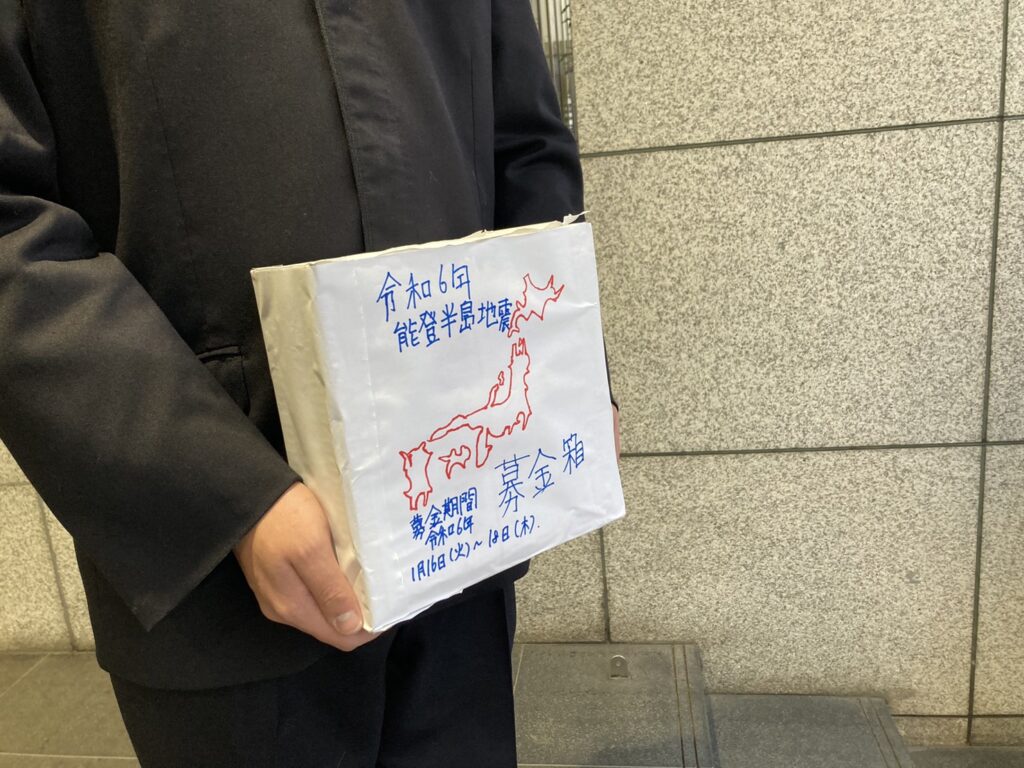 令和6年
能登半島地震
募金箱
募金期間
令和6年
1月16日(火)～18日(木).